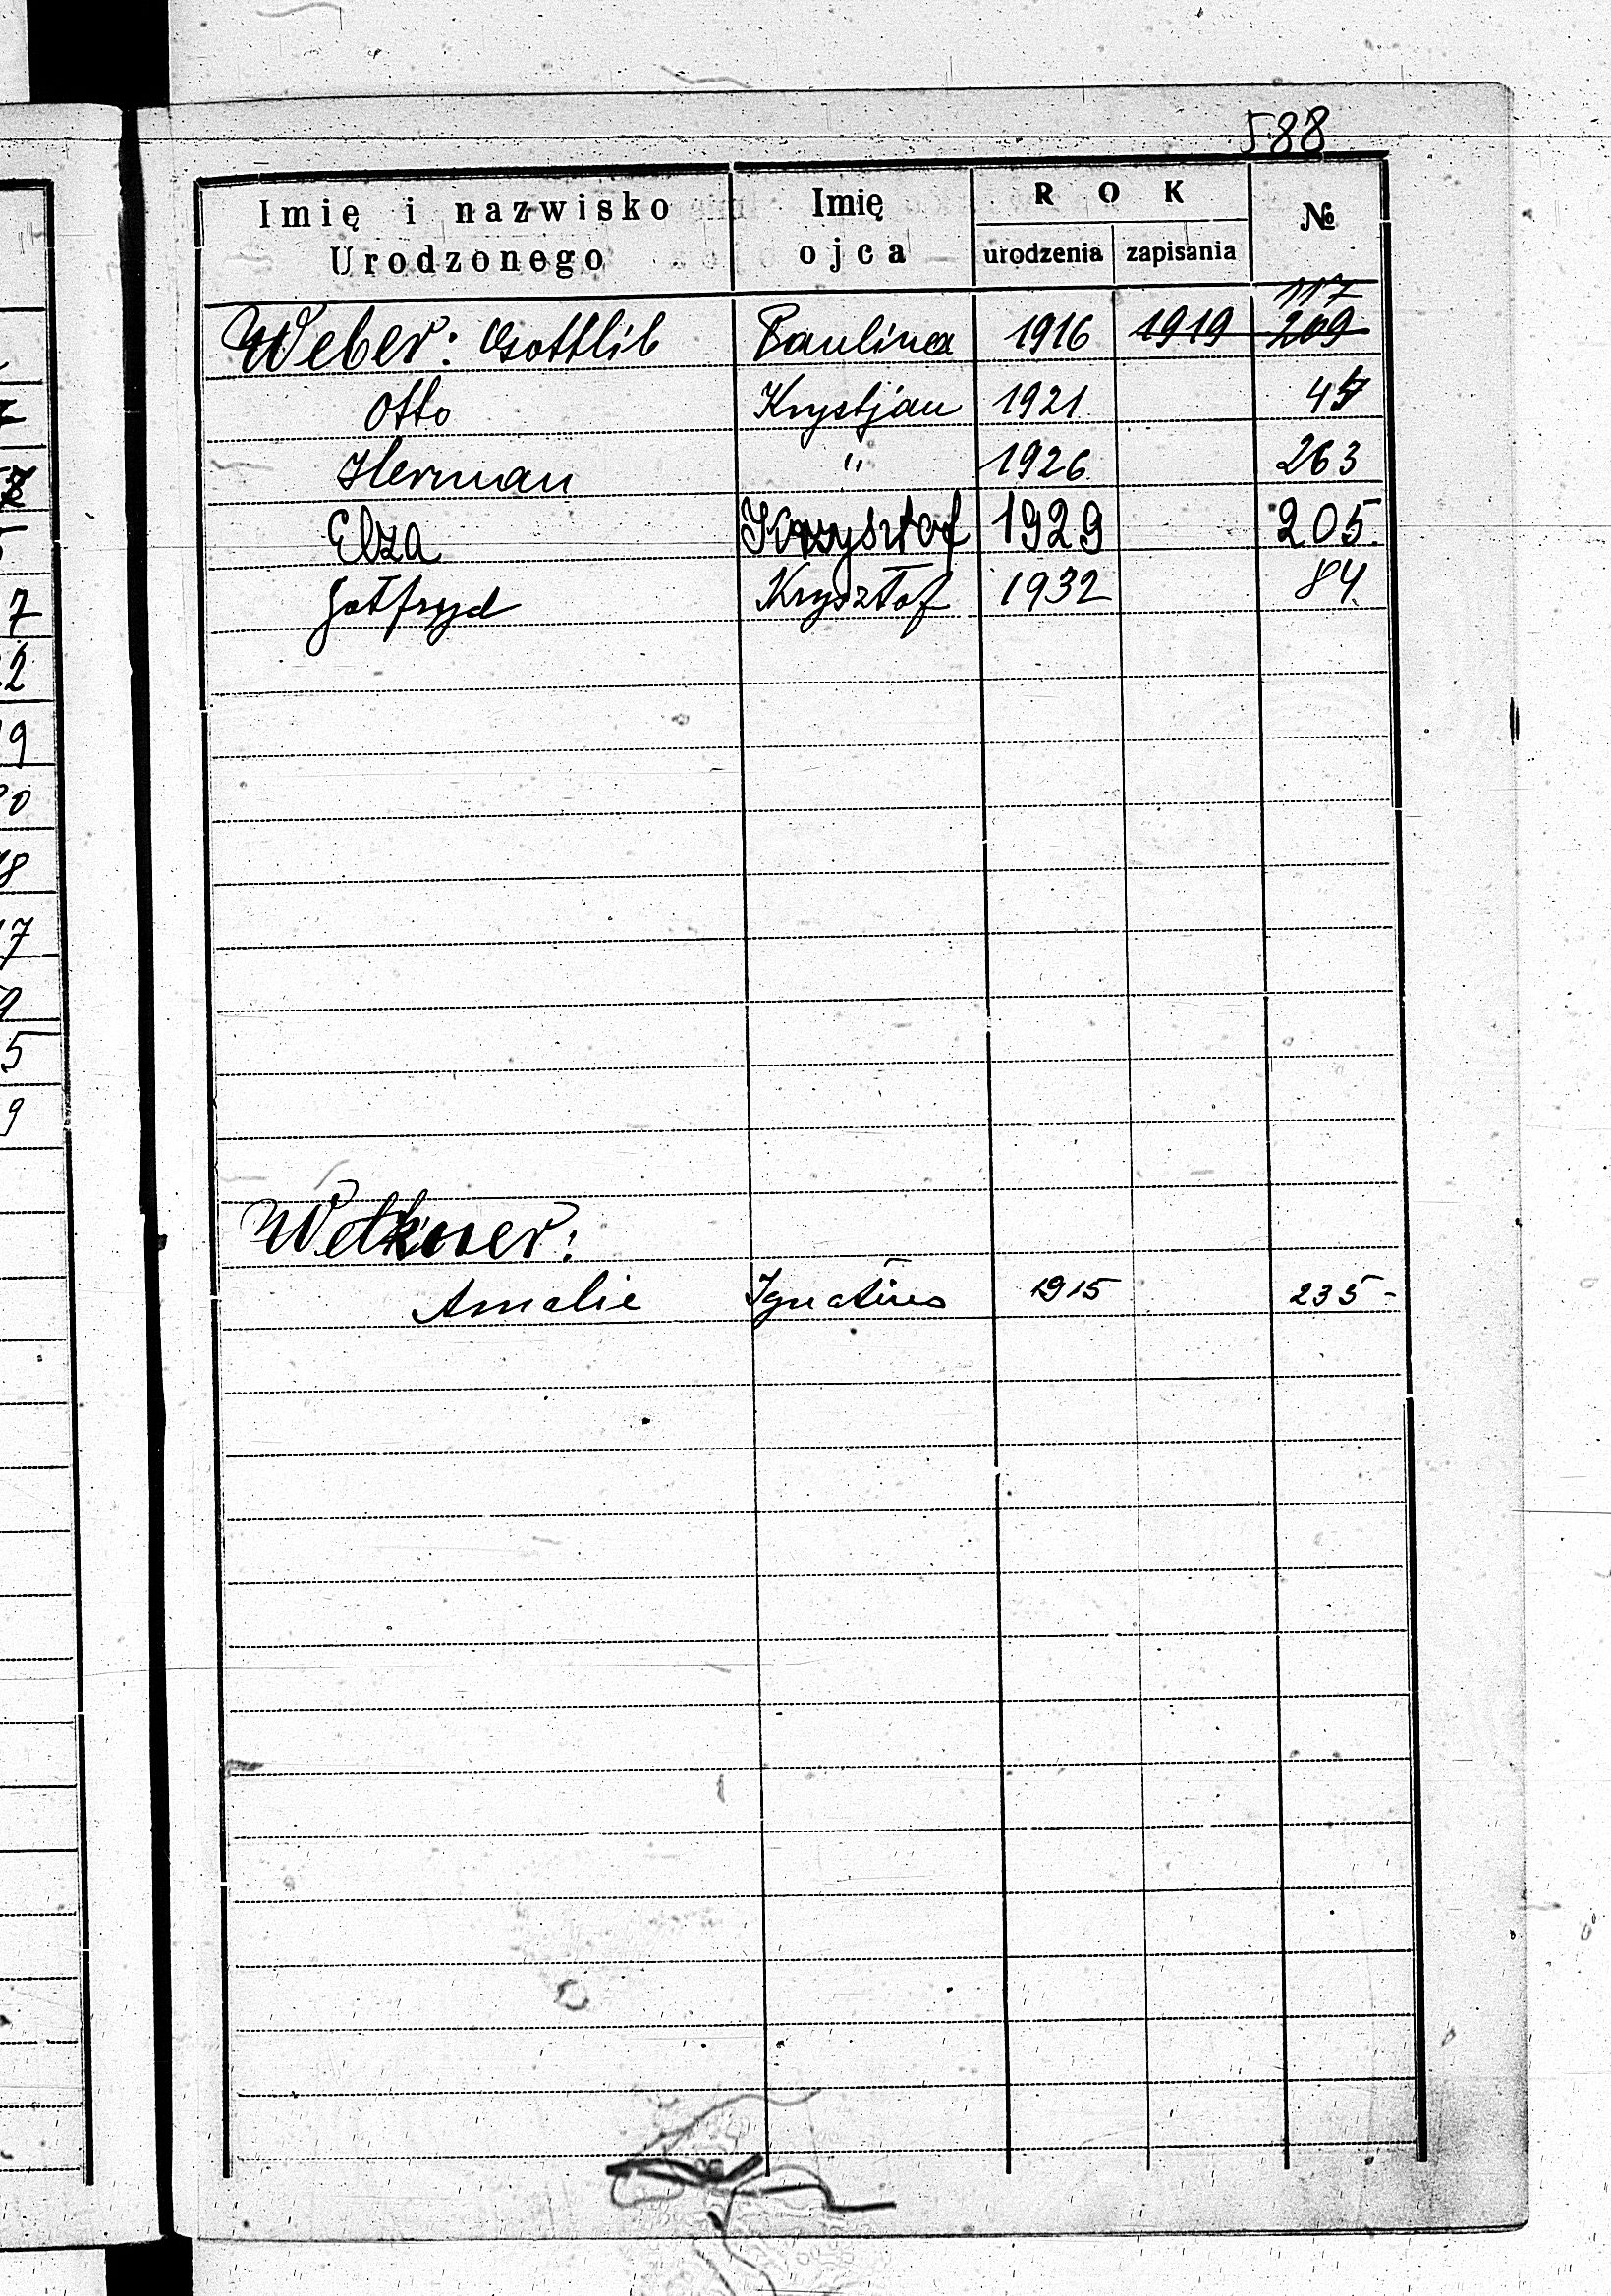 588
Imię i nazwisko Urodzonego Imię ojca ROK urodzenia zapisania №
117
Weber: Gottlib Paulina 1916 1919 209
Otto Krystjan 1921
Herman " 1926 263
Elza Krzysztof 1929 205.
Gotfryd Krysztof 1932 84
Amalie Ignatius 1915 235-
7
22
19
5
9